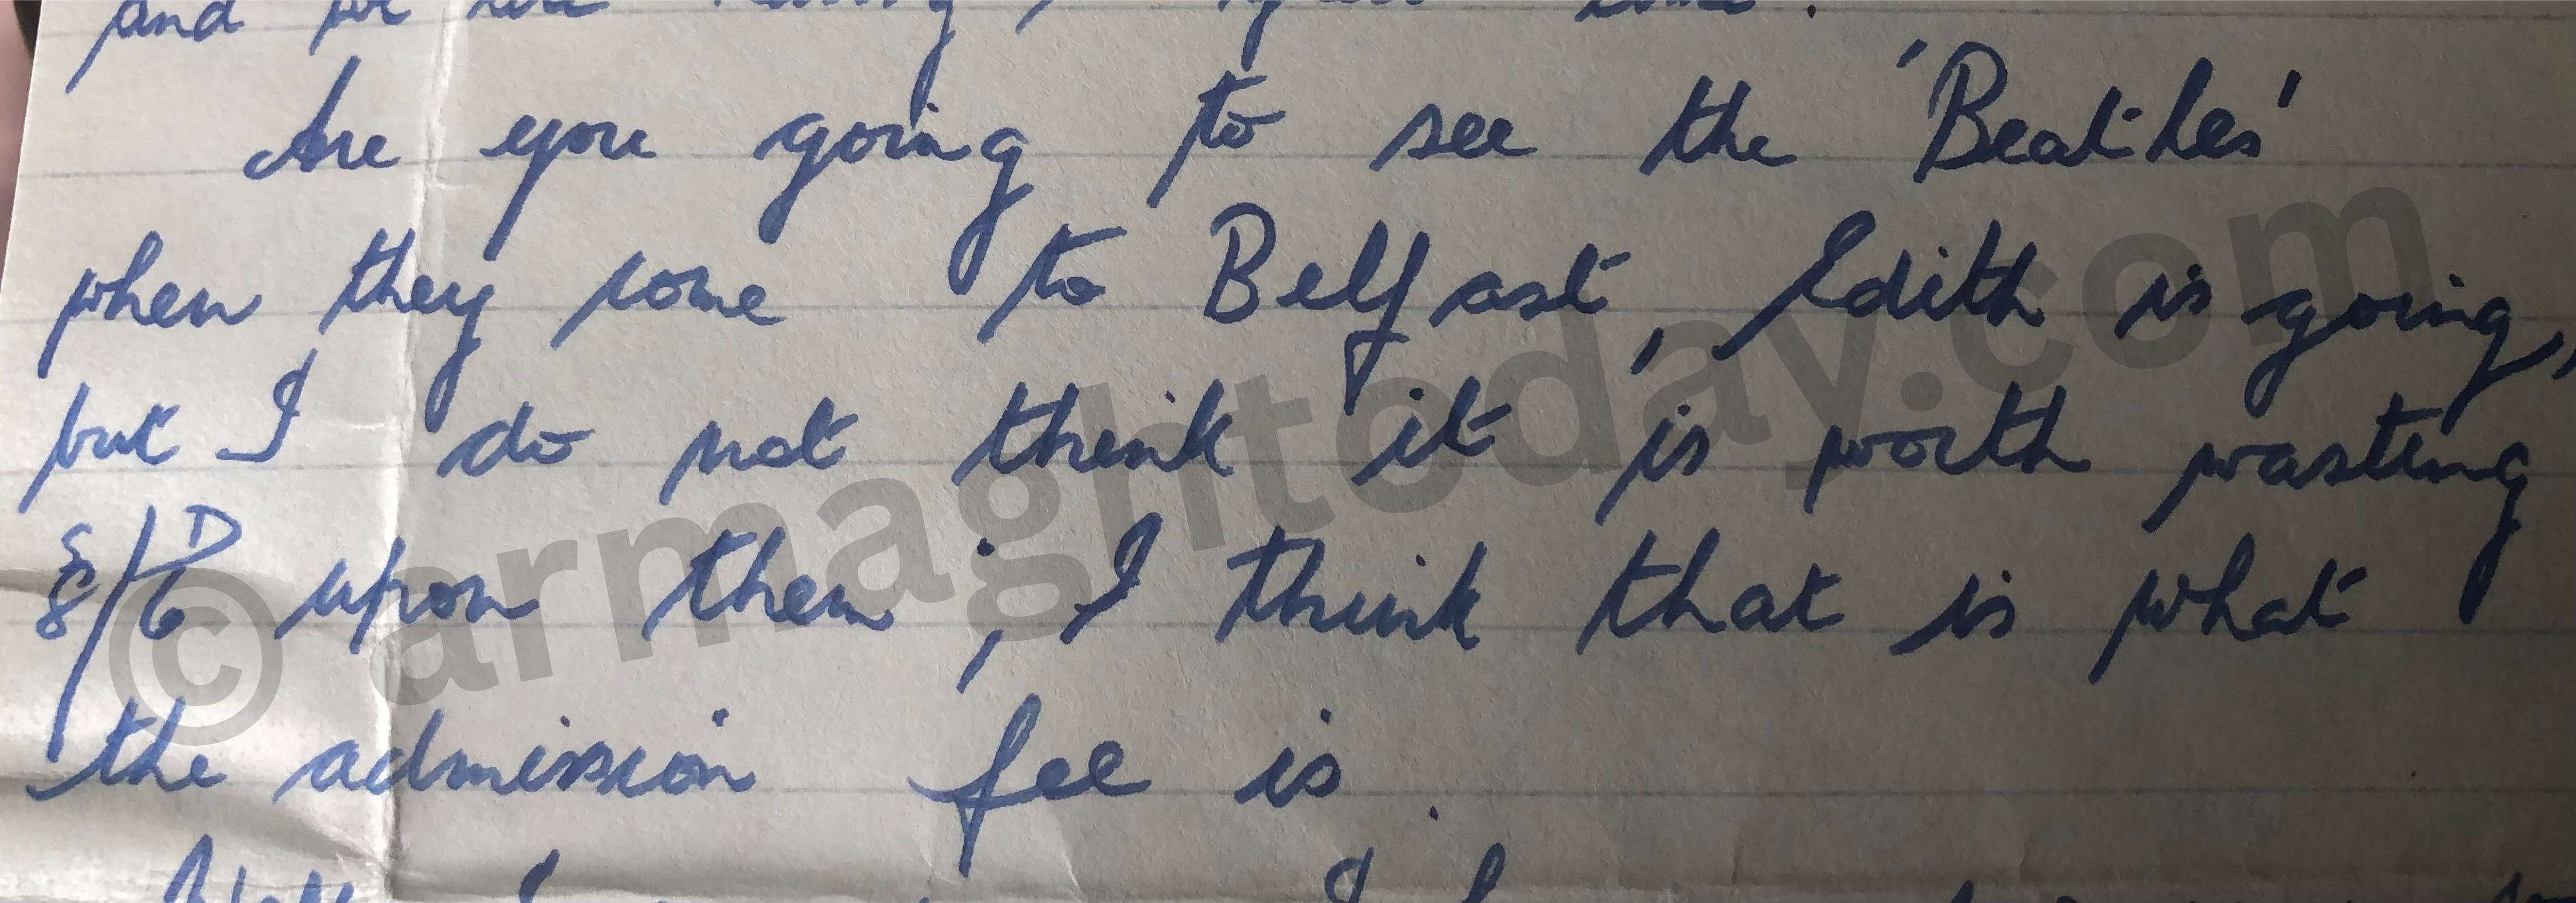 and we are having a great time.
Are you going to see the 'Beatles'
when they come to Belfast, Edith is going,
but I do not think it is worth wasting
8S/6D upon them, I think that is what
the admission fee is.
© armaghtoday.com